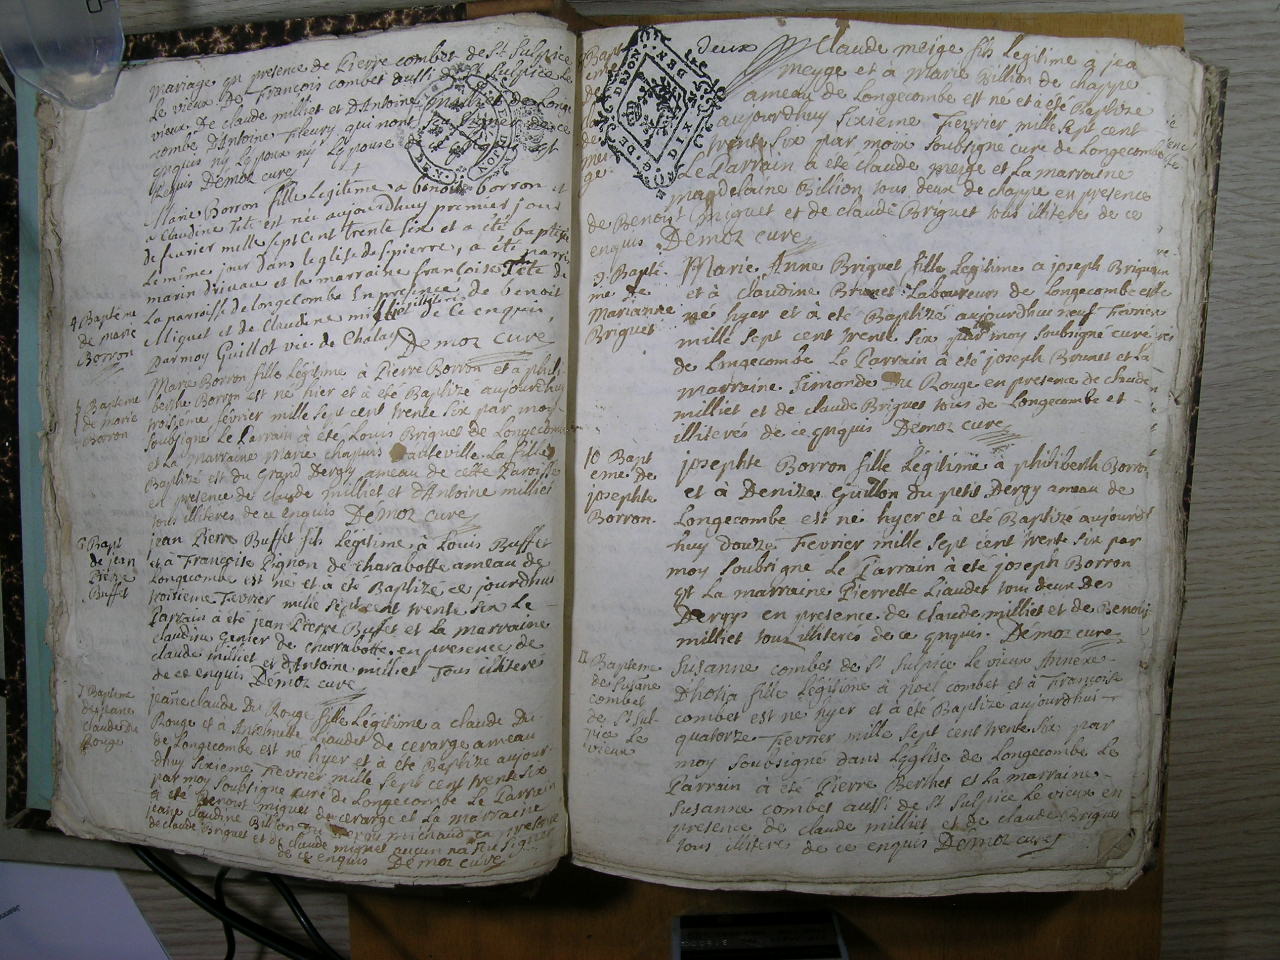 mariage en presence de Pierre combet de St Sulpice
le vieux De François combet aussi de St Sulpice le
vieux De claude milliet et d'Antoine milliet de Longe
combe d'Antoine Fleury qui n'ont
enquis ny L'epoux ny L'epouse
Requis Démoz curé
Marie Borron fille Legitime a benoit borron et
a Claudine Tété est née aujourdhuy premier jour
de fevrier mille sept cent trente six et a été baptisée
le même jour dans leglise de St pierre, a été parrin
marin drivaux et la marraine françoise Tété de
La parroisse de longecombe En presence de benoit
Miguet et de Claudine milliet illiteres de ce enquis,
par moy Guillot vic. de Chaley Démoz curé
4 Baptême
de marie
Borron
Marie Borron fille Légitime à Pierre Borron et à phili-
berthe Borron est né hier et à été Baptizé aujourdhuy
troisième février mille sept cent trente six par moy
soubsigné Le Parrain à été Louis Briguet de Longecombe
et La Marraine Marie chapuis d'aulleville La fille
Baptizé est du Grand Dergy ameau de cette Paroisse
en presence de claude milliet et d'Antoine milliet
tous illiteres de ce enquis Démoz curé
5 Bapteme
de marie
Borron
jean Pierre Buffet fils Légitime à Louis Buffet
et à Françoise Pignon de charabotte ameau de
Longecombe est né et à été Baptizé ce jourdhuy
troisieme Fevrier mille sept cent trente six Le
Parrain à été jean Pierre Buffet et La marraine
claudine Genier de charabotte en presence de
claude milliet et d'Antoine milliet Tous illiteres
de ce enquis Démoz curé
6 Bapt
de jean
Pierre
Buffet
jeane claude du Rouge fille Légitime a claude Du
Rouge et à Anthelmette Liaudet de cerarge ameau
de Longecombe est né hyer et à été Baptizé aujour
dhuy sixieme Fevrier mille sept cent trente six
par moy soubsigné curé de Longecombe Le Parrain
à été Benoit miguet de cerarge et La marraine
jeane claudine Billion michaud en presence
de claude Briguet et de claude miguet aucun na sceu signer
de ce enquis Démoz curé
7 Baptême
de jeane
claude du
Rouge
deux
Claude meige fils legitime a jea
meyge et à Marie Billion de chappe
ameau de Longecombe est né et a été Baptizé
aujourdhuy sixième Fevrier mille sept cent
trente six par moy soubsigne cure de Longecombe
Le Parrain à été claude meige et La marraine
magdelaine Billion tous deux de chappe en presence
de Benoist miguet et de claude Briguet tous illiteres de ce
enquis Démoz curé
9 Bapti-
me de
Marianne
Briguet
Marie Anne Briguet fille Légitime a joseph Briguet
et à claudine Brunet Laboureurs de Longecombe est
né hyer et à été Baptizé aujourdhui neuf Fevrier
mille sept cent trente six par moy soubsigne curé
de Longecombe Le Parrain à été joseph Brunet et La
marraine simonde Du Rouge en presence de claude
milliet et de claude Briguet tous de Longecombe et
illiterés de ce enquis Démoz curé
10 Bapt
eme de
josephte
Borron.
josephte Borron fille Légitime à philiberth Borron
et à Denize Guillon du petit Dergy ameau de
Longecombe est né hyer et à été Baptizé aujourd
huy douze Fevrier mille sept cent trente six par
moy soubsigne Le Parrain à été joseph Borron
et La marraine Pierrette Liaudet tous deux des
Dergys en presence de claude milliet et de Benoit
milliet tous illiteres de ce enquis. Démoz curé
11 Bapteme
de susane
combet
de St sul-
pice Le
vieux
Susanne combet de St sulpice Le vieux Annexe
Dhotia fille Légitime à noel combet et à Françoise
combet est né hyer et à été Baptize aujourdhui
quatorze Fevrier mille sept cent trente six par
moy soubsigné dans L'église de Longecombe Le
Parrain à été Pierre Berthet et La marraine
Susanne combet aussi de St sulpice Le vieux en
presence de claude milliet et de claude Briguet
tous illiteres de ce enquis Démoz curé